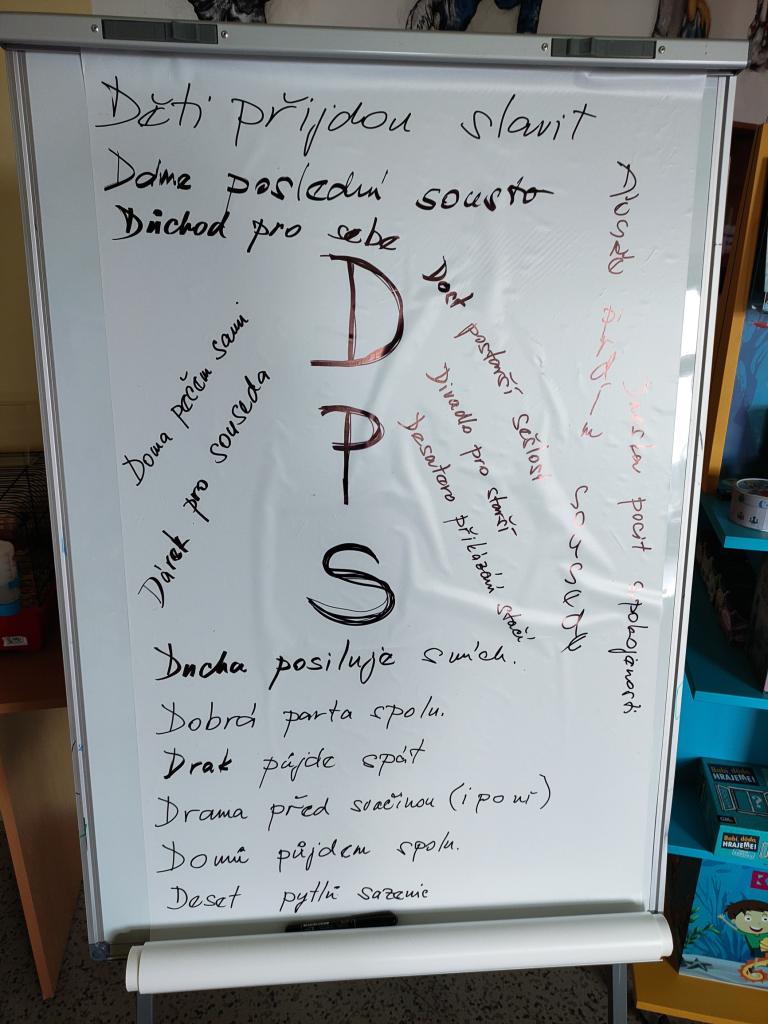 Děti přijdou slavit
Dáme poslední sousto
Důchod pro sebe
D
P
S
Doma pečem sami
Dárek pro souseda
Dost postarší sešlost
Divadlo pro starší
Desatero přikázání stačí
souseda
pocit spokojenosti
Ducha posiluje smích.
Dobrá parta spolu.
Drak půjde spát
Drama před svačinou (i po ní)
Domů půjdem spolu.
Deset pytlů sazenic
Babi, dědo, HRAJEME!
Babi, dědo, HRAJEME!